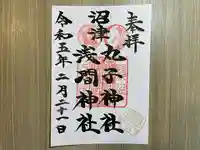 奉拝
沼津
丸子神社
浅間神社
令和五年二月二十一日